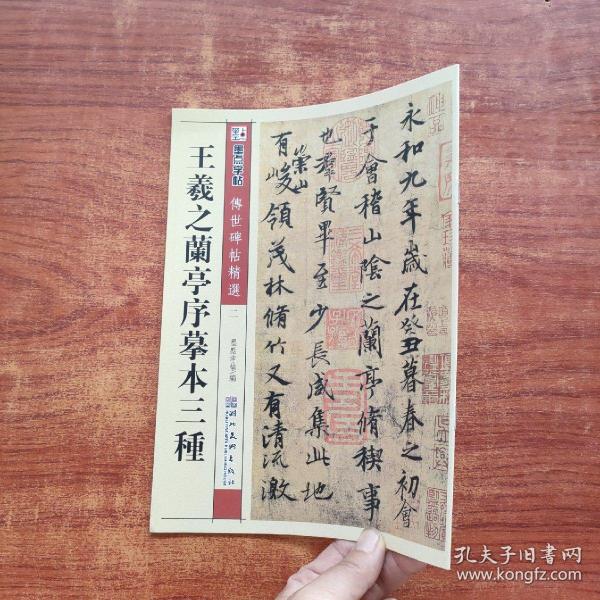 王羲之蘭亭序摹本三種
墨点字帖
傳世碑帖精選
二
湖北美术出版社
永和九年歲在癸丑暮春之初會
于會稽山陰之蘭亭脩稧事
也羣賢畢至少長咸集此地
有崇山峻領茂林脩竹又有清流激
孔夫子旧书网
www.kongfz.com